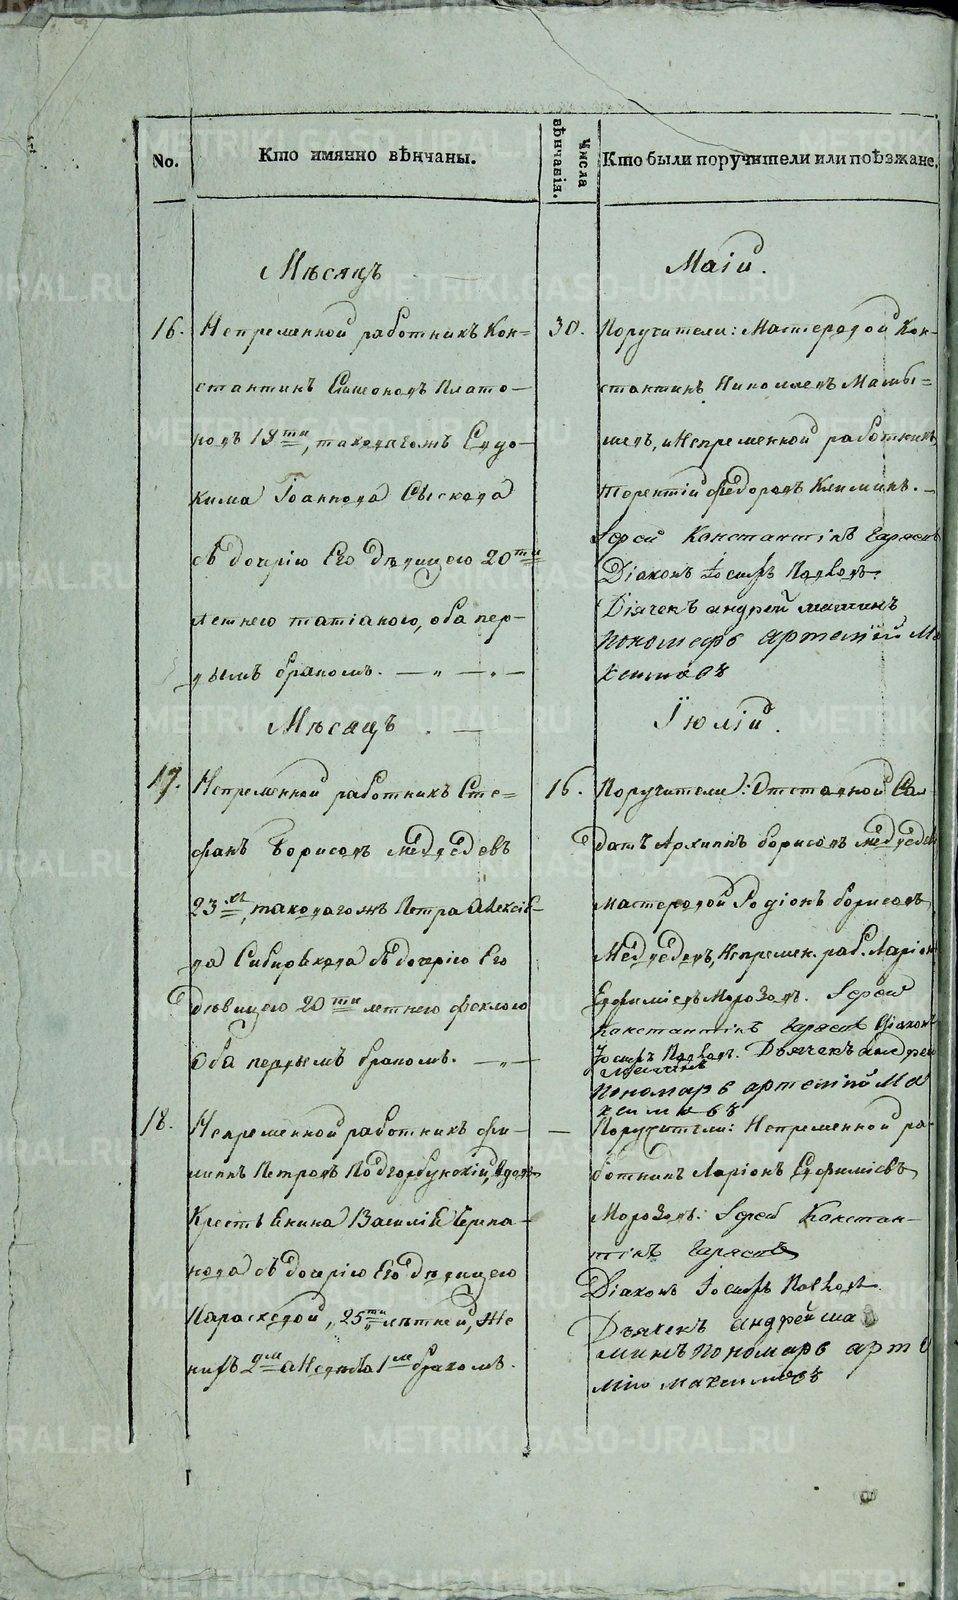 No.
Кто имянно вѣнчаны.
Числа вѣнчанія.
Кто были поручители или поѣзжане.
Мѣсяцъ
Маіи.
16. Непременной работникъ Кон-
стантинъ Симеоновъ Плато-
новъ 18ти, таковагожъ Евдо-
кима Іоаннова Сыскова
съ дочерію Его дѣвицею 20ти
летнею татіаною, оба пер-
вымъ бракомъ.
30.
Поручители: Мастеровой Кон-
стантинъ
шевъ, и Непременной работникъ
терентій федоровъ Климинъ.
Іерей Константинъ
Діаконъ Іосифъ
Діячекъ андрей машинъ
пономарь артемій Ма
ксимовъ
Мѣсяцъ
Іюліи.
17. Непременной работникъ Сте-
фанъ Борисовъ медвѣдевъ
23хъ, таковагожъ Петра Алексіе-
ва съ дочерію Его
дѣвицею 20ти летнею феклою
оба первымъ бракомъ.
16.
Поручители: Отставной Сол
датъ Архиппъ борисовъ медвѣдевъ
мастеровой Родіонъ борисовъ
Медведевъ, Непремен. раб. Ларіонъ
Ефиміевъ Морозовъ. Іерей
Константинъ діаконъ
Іосифъ Дьячекъ андрей
машинъ
пономарь артемій Ма
ксимовъ
18. Непременной работникъ фи-
липпъ Петровъ Подгорбунскій, вдовъ
Василіа Черпа-
нова съ дочерію Его дѣвицею
Параскевой, 25ти лѣтней, же
нихъ 2мъ а Невѣста 1мъ бракомъ.
Поручители: Непременной ра-
ботникъ Ларіонъ Ефиміевъ
Морозовъ: Іерей Констан-
тинъ
Діаконъ Іосифъ
Дьячекъ андрей ма
шинъ пономарь арте
мій максимовъ
METRIKI.GASO-URAL.RU